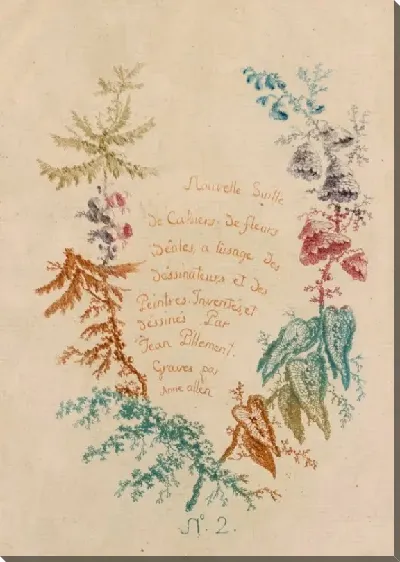 Nouvelle Suitte
de Cahiers de fleurs
idéales a l'usage des
Dessinateurs et des
Peintres. Inventés et
dessinés Par
Jean Pillement.
Gravés par
Anne allen
N°. 2.